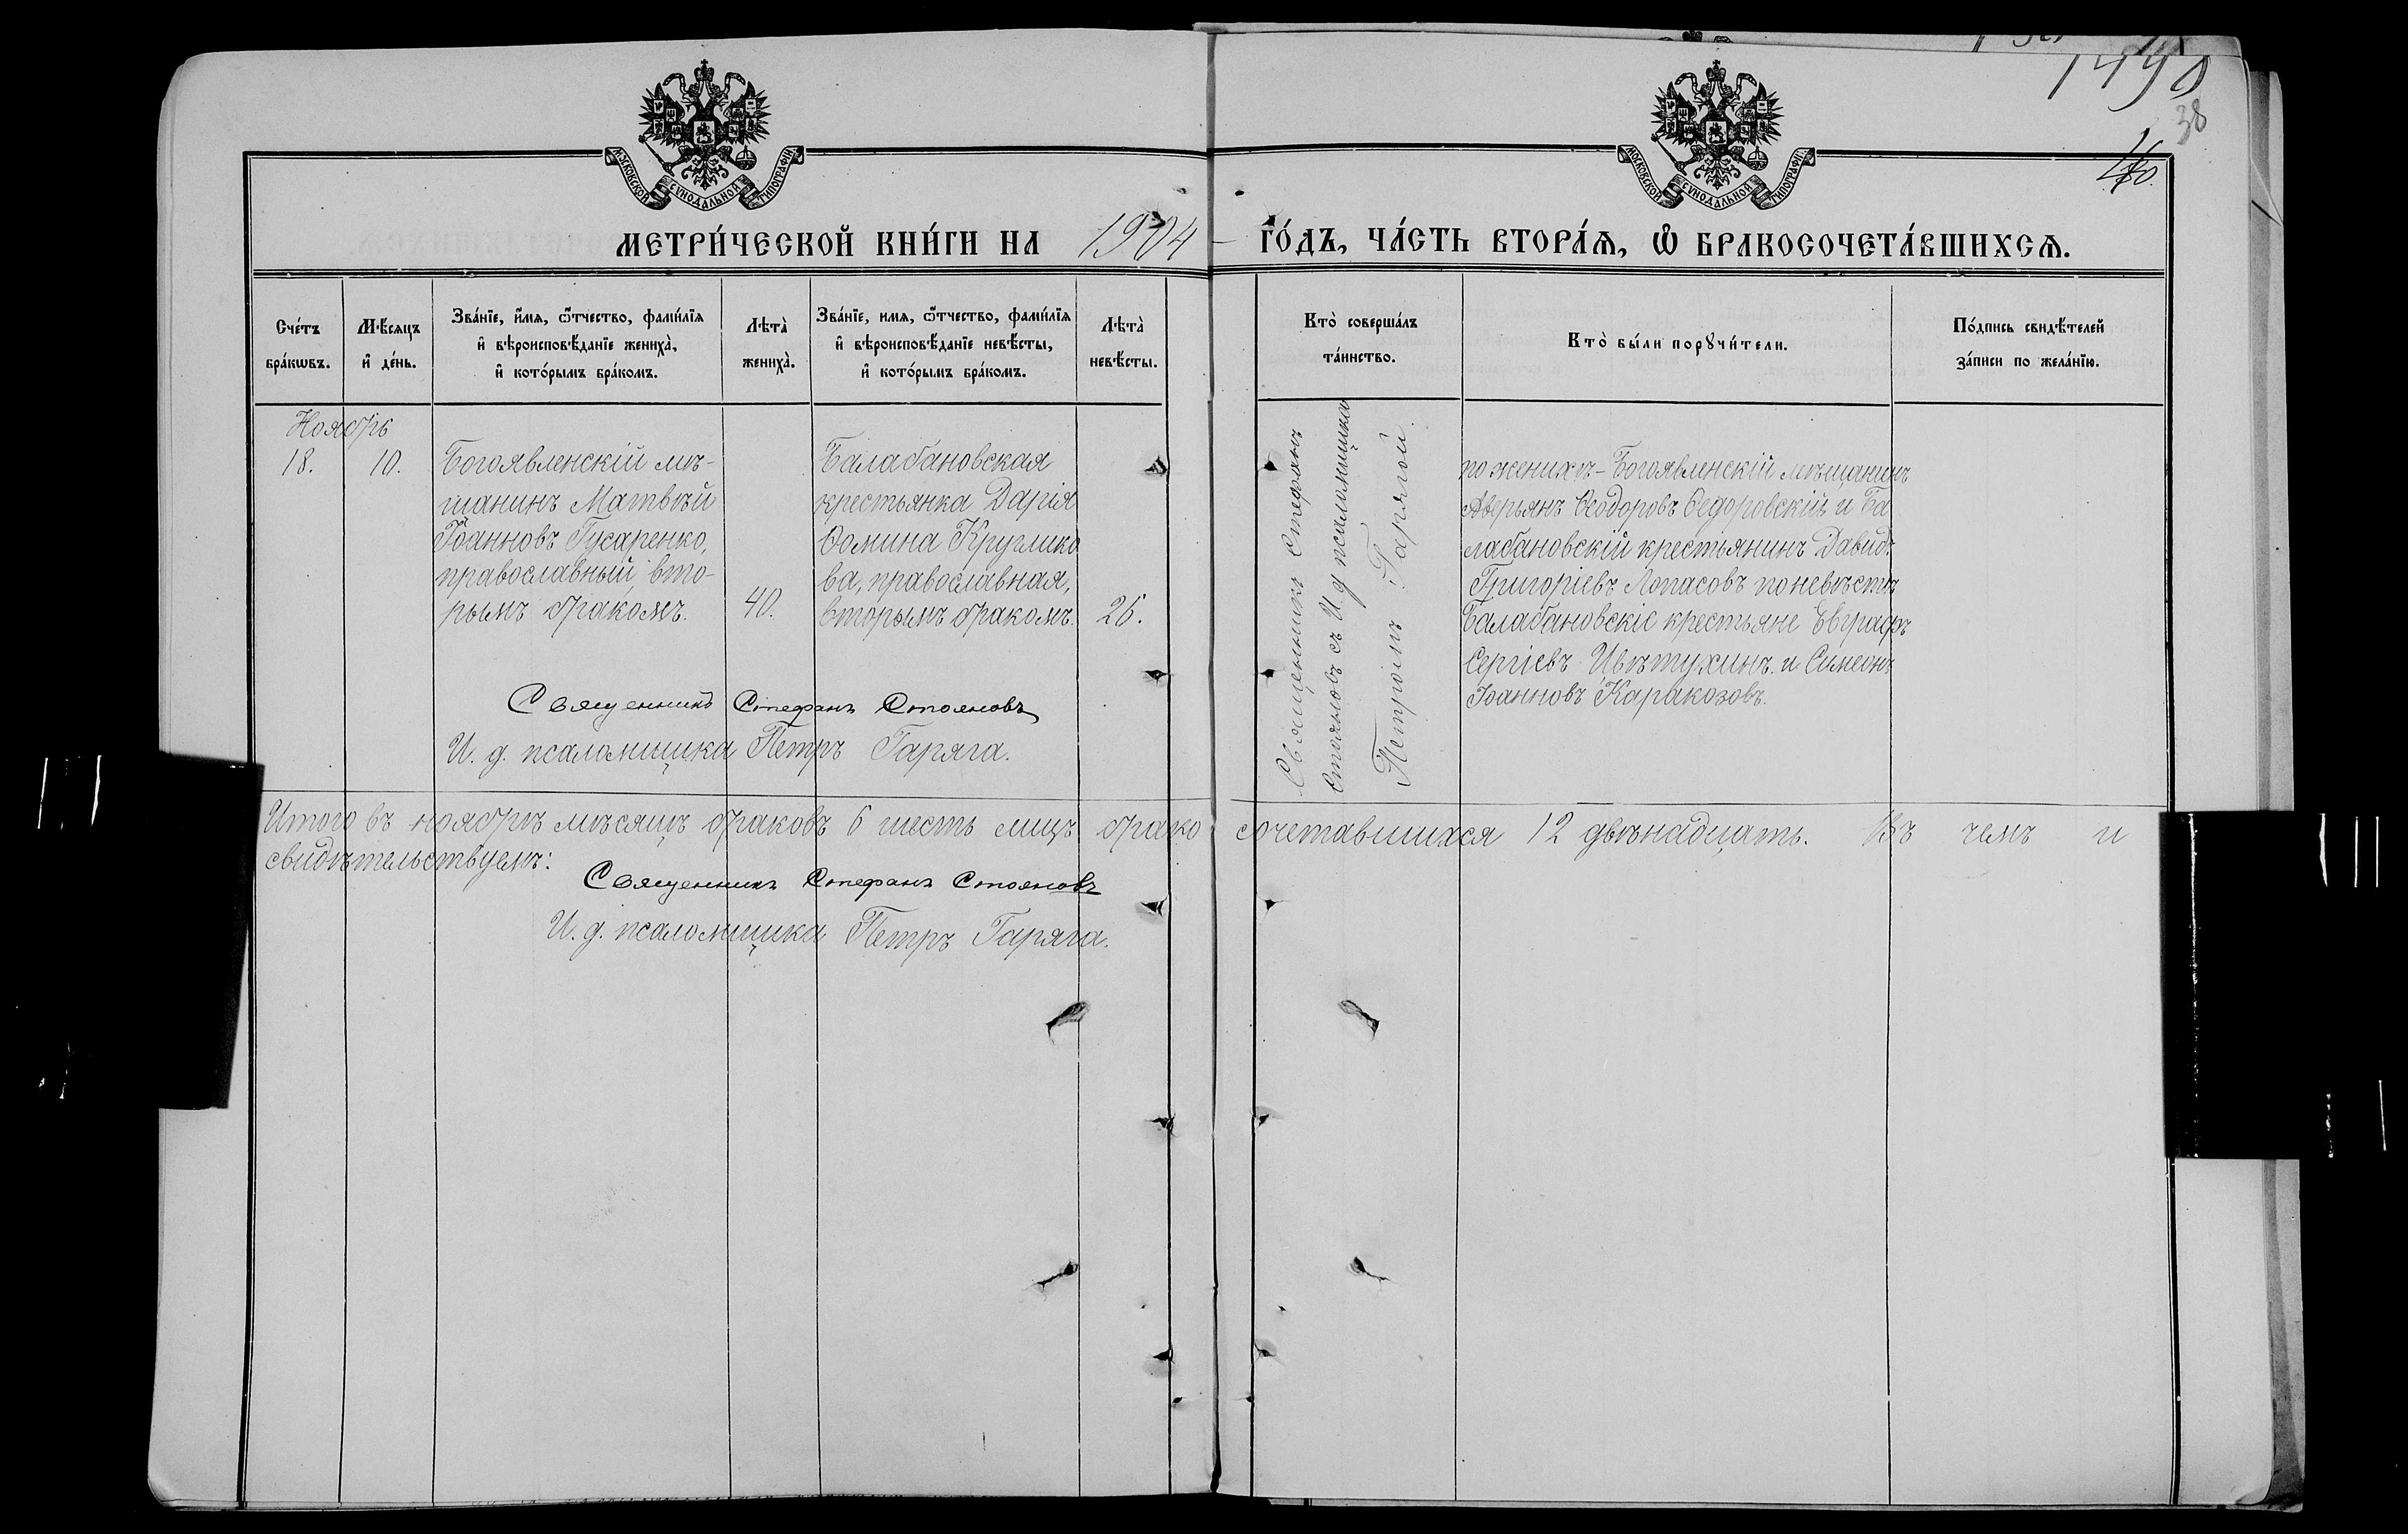 1490
38
МОСКОВСКОЙ СѴНОДАЛЬНОЙ ТИПОГРАФІИ.
МОСКОВСКОЙ СѴНОДАЛЬНОЙ ТИПОГРАФІИ.
МЕТРИ́ЧЕСКОЙ КНИ́ГИ НА 1904
ГО́ДЪ, ЧА́СТЬ ВТОРА́Ѧ, Ѽ БРАКОСОЧЕТА́ВШИХСѦ.
Сче́тъ
бра́кѡвъ.
Мѣ́сяцъ
и҆ де́нь.
Зва́нїе, и҆́мя, ѻ҆́тчество, фами́лїя
и҆ вѣроисповѣ́данїе жениха̀,
и҆ кото́рымъ бра́комъ.
Лѣта̀
жениха̀.
Зва́нїе, имя, ѻ҆́тчество, фами́лїя
и҆ вѣроисповѣ́данїе невѣ́сты,
и҆ кото́рымъ бра́комъ.
Лѣта̀
невѣ́сты.
Кто̀ соверша́лъ
та́инство.
Кто̀ бы́ли порꙋчи́тели.
По́дпись свидѣ́телей
за́писи по жела́нїю.
Ноябрь
18. 10.
Богоявленскій мѣ-
щанинъ Матвѣй
Іоанновъ Гусаренко,
православный, вто-
рымъ бракомъ.
40.
Балабановская
крестьянка Дарія
Ѳомина Круглико
ва, православная,
вторымъ бракомъ.
26.
Священникъ Стефанъ
Стояновъ съ И. д псаломщика
Петромъ Гарягой.
по женихѣ - Богоявленскій мѣщанинъ
Аверьянъ Ѳеодоровъ Ѳедоровскій и Ба
лабановскій крестьянинъ Давидъ
Григоріевъ Лопасовъ по невѣстѣ
Балабановскіе крестьяне Евграфъ
Сергіевъ Цвѣтухинъ и Симеонъ
Іоанновъ Каракозовъ.
Священникъ Стефанъ Стояновъ
И. д. псаломщика Петръ Гаряга.
Итого въ ноябрѣ мѣсяцѣ браковъ 6 шесть лицъ брако сочетавшихся 12 двѣнадцать. Въ чемъ и
свидѣтельствуемъ:
Священникъ Стефанъ Стояновъ
И. д. псаломщика Петръ Гаряга.